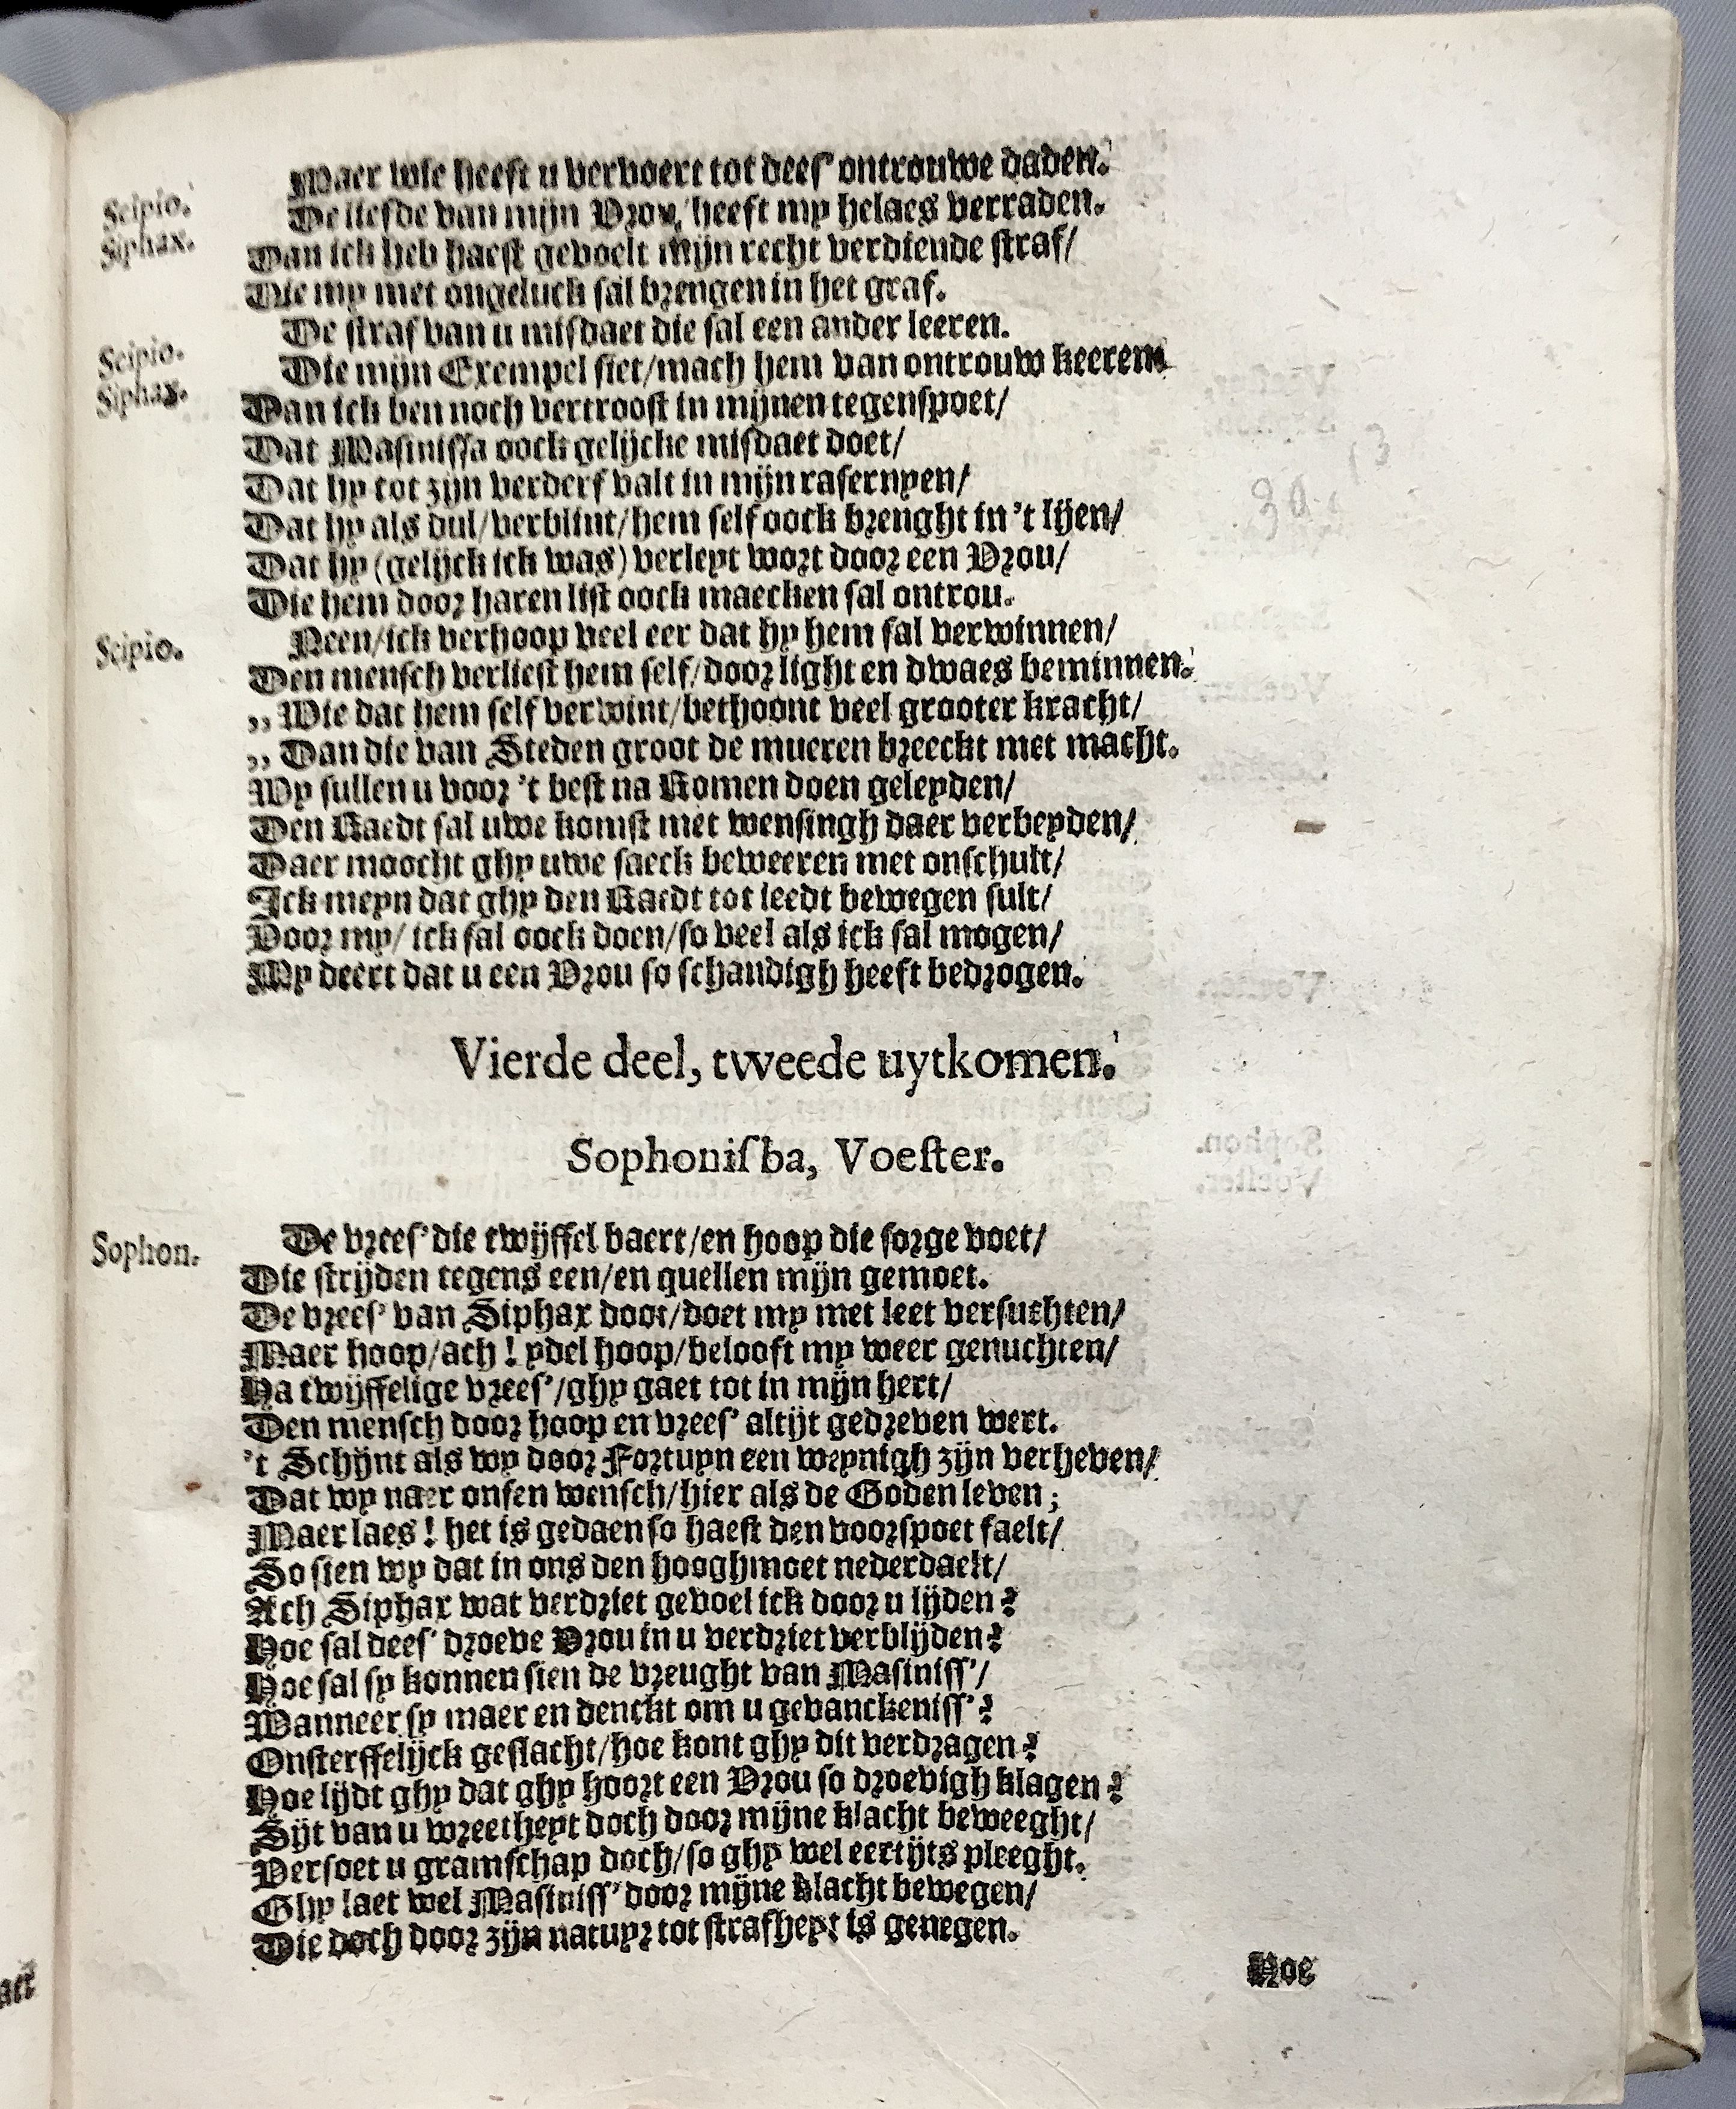 Scipio. Maer wie heeft u vervoert tot dees' ontrouwe daden.
Siphax. De liefde van mijn Vrou, heeft my helaes verraden.
Dan ick heb haest gevoelt mijn recht verdiende straf/
Die my met ongeluck sal brengen in het graf.
Scipio. De straf van u misdaet die sal een ander leeren.
Siphax. Die mijn Exempel siet/mach hem van ontrouw keeren.
Dan ick ben noch vertroost in mijnen tegenspoet/
Dat Masinissa oock gelijcke misdaet doet/
Dat hy tot zijn verderf valt in mijn rasernyen/
Dat hy als dul/verblint/hem self oock brenght in 't lijen/
Dat hy (gelijck ick was) verleyt wort door een Vrou/
Die hem door haren list oock maecken sal ontrou.
Scipio. Neen/ick verhoop veel eer dat hy hem sal verwinnen/
Den mensch verliest hem self/door light en dwaes beminnen.
,, Wie dat hem self verwint/bethoont veel grooter kracht/
,, Dan die van Steden groot de mueren breeckt met macht.
Wy sullen u voor 't best na Romen doen geleyden/
Den Raedt sal uwe komst met wensingh daer verbeyden/
Daer moocht ghy uwe saeck beweeren met onschult/
Ick meyn dat ghy den Raedt tot leedt bewegen sult/
Voor my/ ick sal oock doen/so veel als ick sal mogen/
My deert dat u een Vrou so schandigh heeft bedrogen.
Vierde deel, tweede uytkomen.
Sophonisba, Voester.
Sophon. De vrees' die twijffel baert/en hoop die sorge voet/
Die strijden tegens een/en quellen mijn gemoet.
De vrees' van Siphax doot/doet my met leet versuchten/
Maer hoop/ach! ydel hoop/belooft my weer genuchten/
Ha twijffelige vrees'/ghy gaet tot in mijn hert/
Den mensch door hoop en vrees' altijt gedreven wert.
't Schijnt als wy door Fortuyn een weynigh zijn verheven/
Dat wy naer onsen wensch/hier als de Goden leven;
Maer laes! het is gedaen so haest den voorspoet faelt/
So sien wy dat in ons den hooghmoet nederdaelt/
Ach Siphax wat verdriet gevoel ick door u lijden?
Hoe sal dees' droeve Vrou in u verdriet verblijden?
Hoe sal sy konnen sien de vreught van Masiniss'/
Wanneer sy maer en denckt om u gevanckeniss'?
Onsterffelijck geslacht/hoe kont ghy dit verdragen?
Hoe lijdt ghy dat ghy hoort een Vrou so droevigh klagen?
Sijt van u wreetheyt doch door mijne klacht beweeght/
Versoet u gramschap doch/so ghy wel eertijts pleeght.
Ghy laet wel Masiniss' door mijne klacht bewegen/
Die doch door zijn natuyr tot strafheyt is genegen.
Hoe